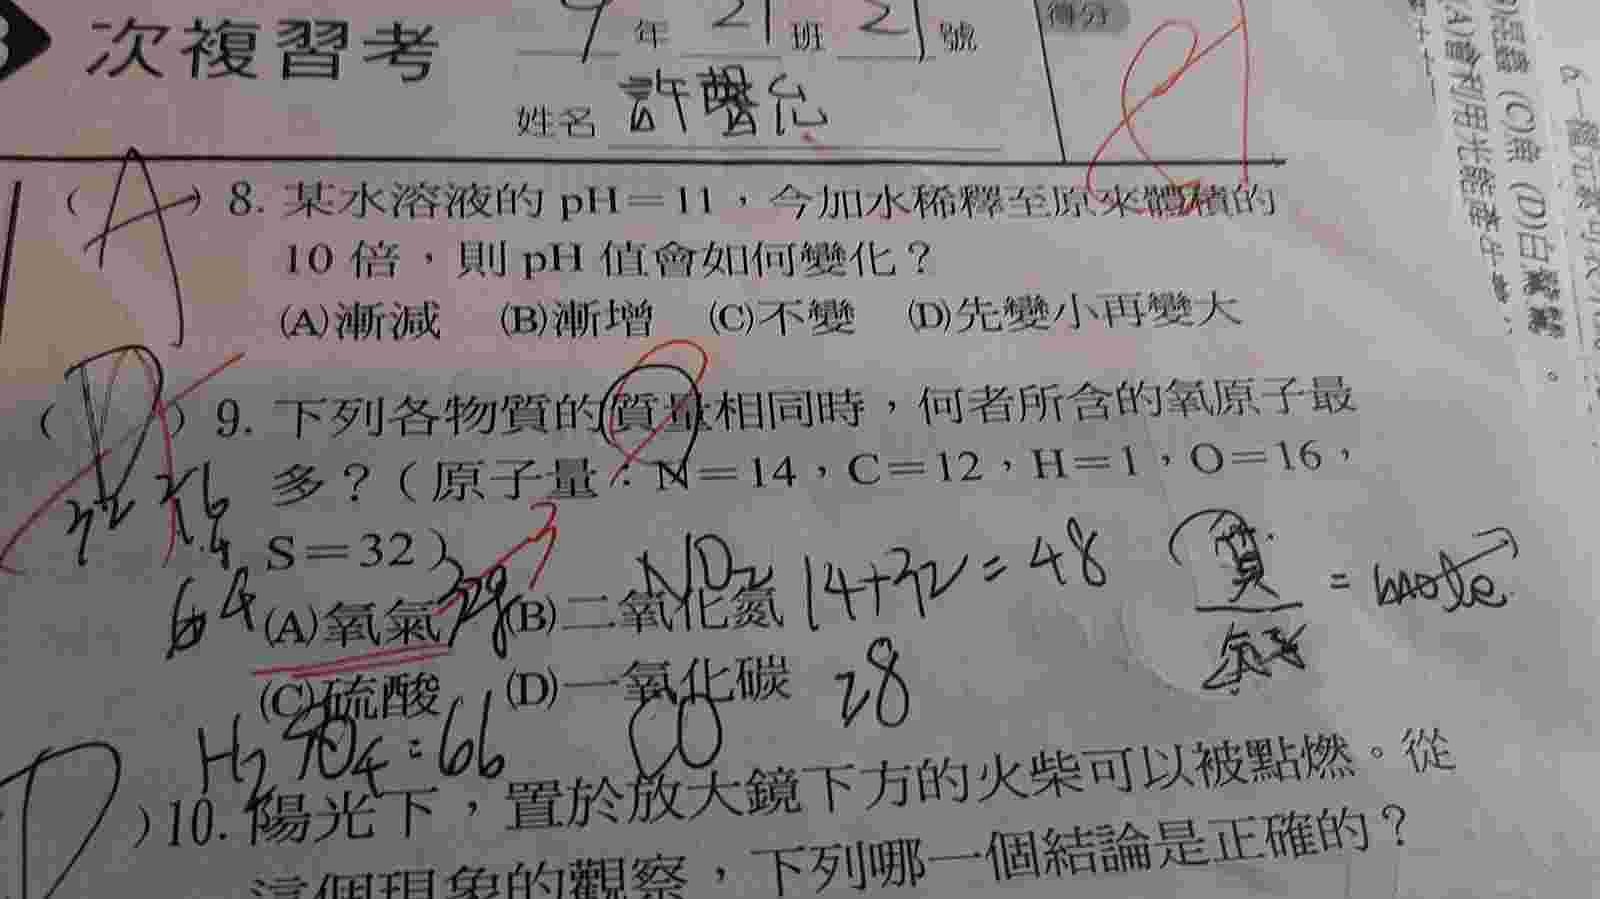 次複習考
9年21班21號
得分
姓名 許
(A)8. 某水溶液的 pH=11，今加水稀釋至原來體積的
10 倍，則 pH 值會如何變化？
(A)漸減 (B)漸增 (C)不變 (D)先變小再變大
(D)9. 下列各物質的質量相同時，何者所含的氧原子最
多？(原子量：N=14，C=12，H=1，O=16，
S=32)
32
NO2 14+32=48
質
= mole
64 (A)氧氣 (B)二氧化氮
28
(C)硫酸 (D)一氧化碳
H2SO4=66
CO
(D)10. 陽光下，置於放大鏡下方的火柴可以被點燃。從
這個現象的觀察，下列哪一個結論是正確的？
(C)魚 (D)白
(A)會利用光能產生